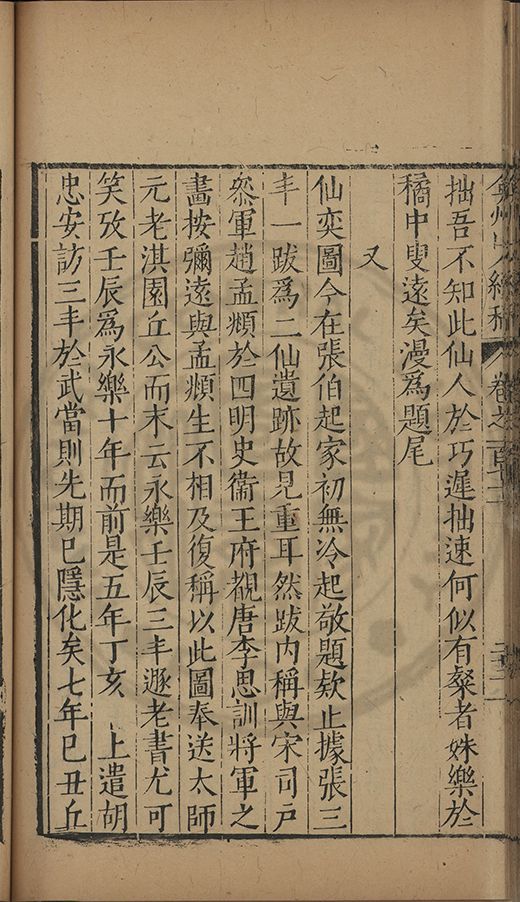 弇州山人續稿 卷之一百七十一
拙吾不知此仙人於巧遲拙速何似有粲者姝樂於
橘中叟遠矣漫爲題尾
又
仙奕圖今在張伯起家初無冷起敬題欵止據張三
丰一跋爲二仙遺跡故見重耳然跋内稱與宋司戶
叅軍趙孟頫於四明史衞王府覩唐李思訓將軍之
畫按彌遠與孟頫生不相及復稱以此圖奉送太師
元老淇園丘公而末云永樂壬辰三丰遯老書尤可
笑攷壬辰爲永樂十年而前是五年丁亥 上遣胡
忠安訪三丰於武當則先期已隱化矣七年巳丑丘